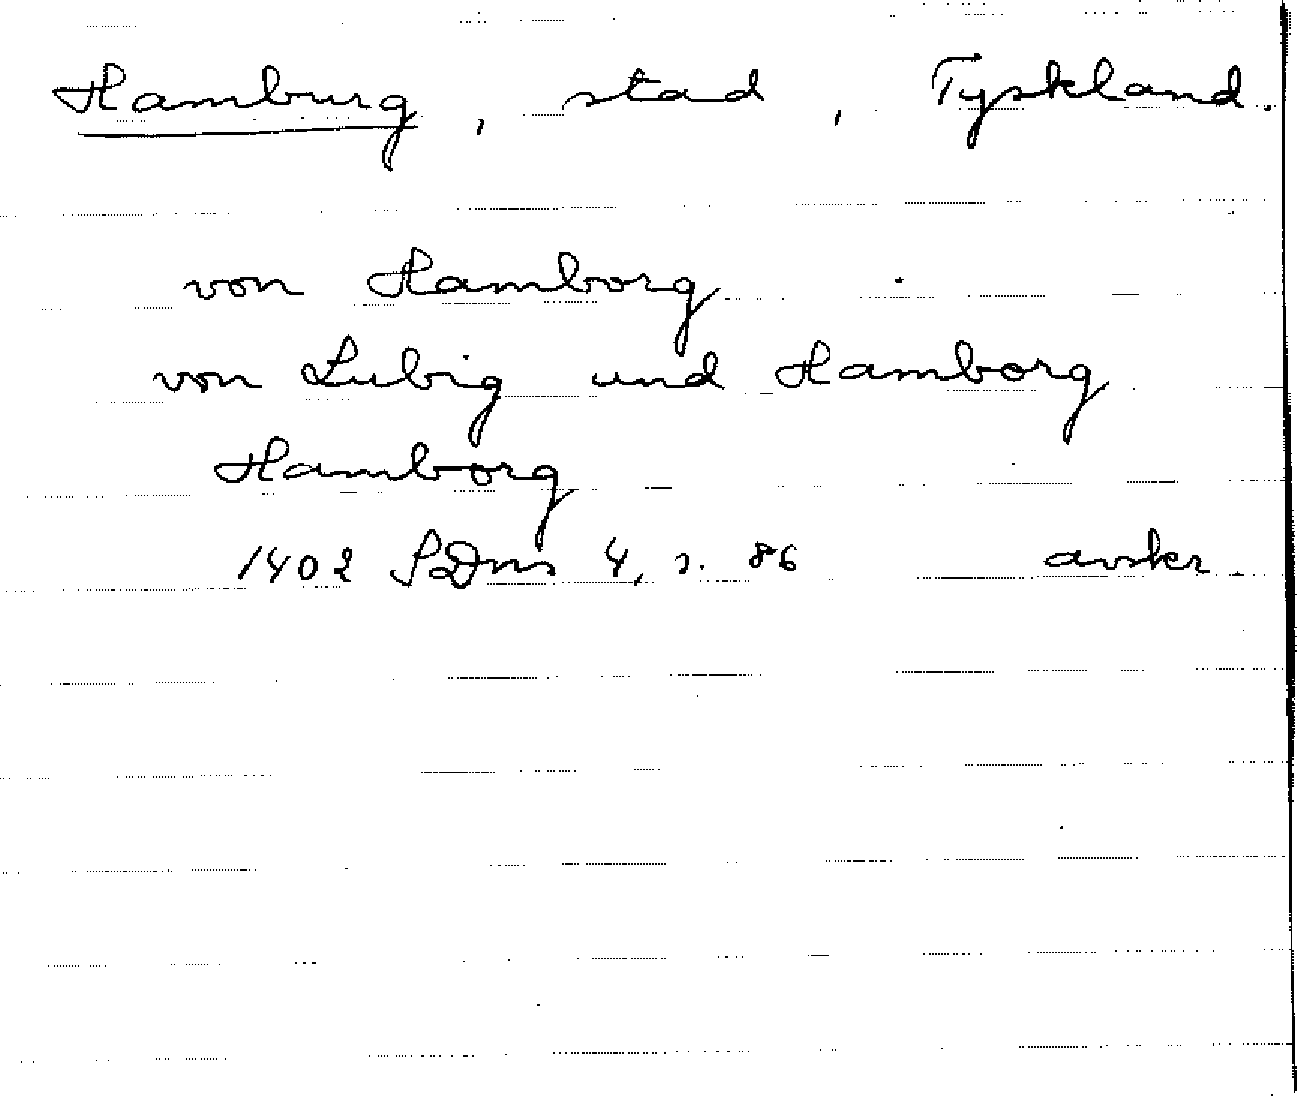 Hamburg, stad, Tyskland.
von Hamborg
von Lubig und Hamborg
Hamborg
1402 SDns 4, s. 86 avskr.